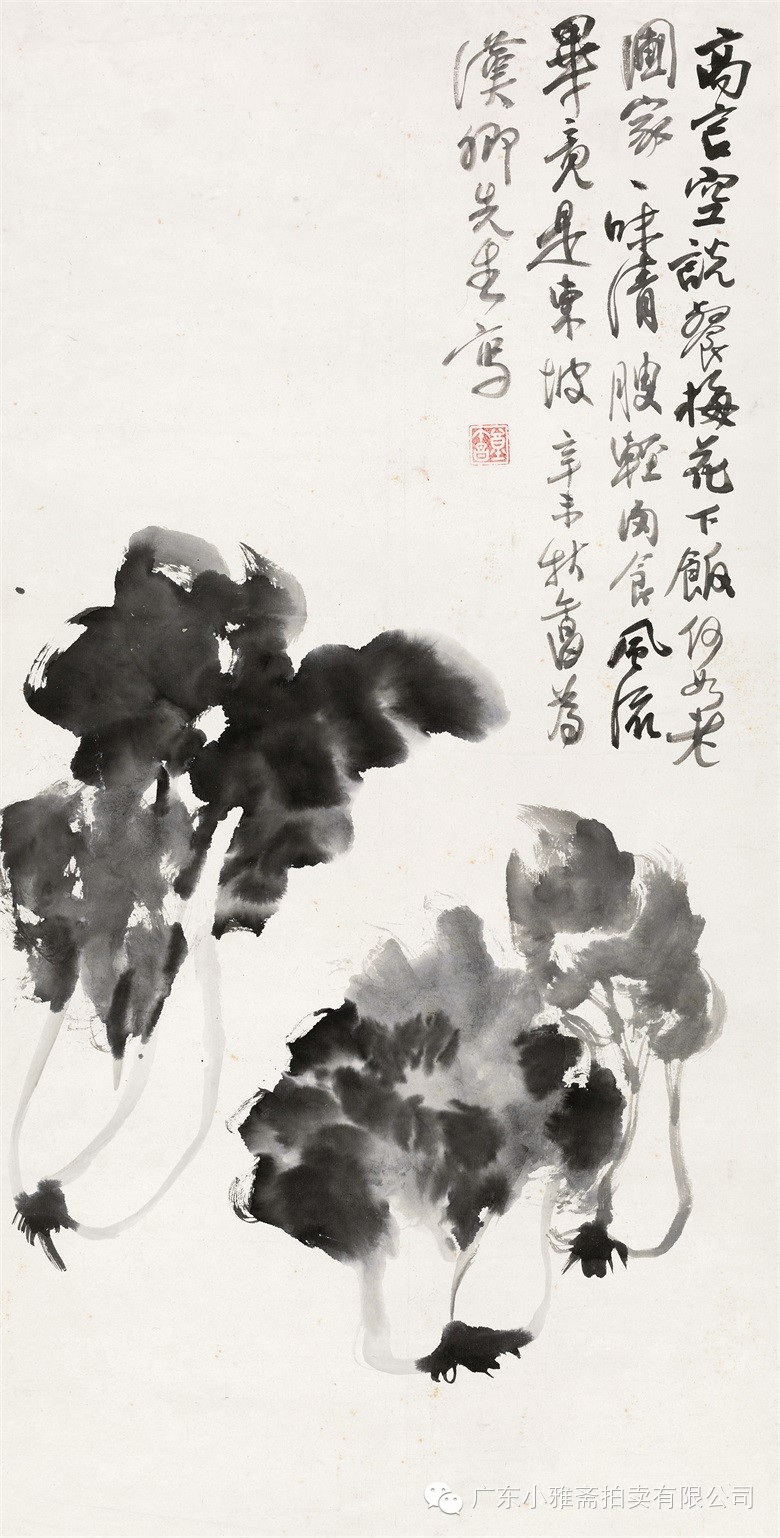 高言空説餐梅花下飯何如老
圃家一味清腴輕肉食風流
畢竟是東坡 辛未秋為
漢卿先生寫
广东小雅斋拍卖有限公司